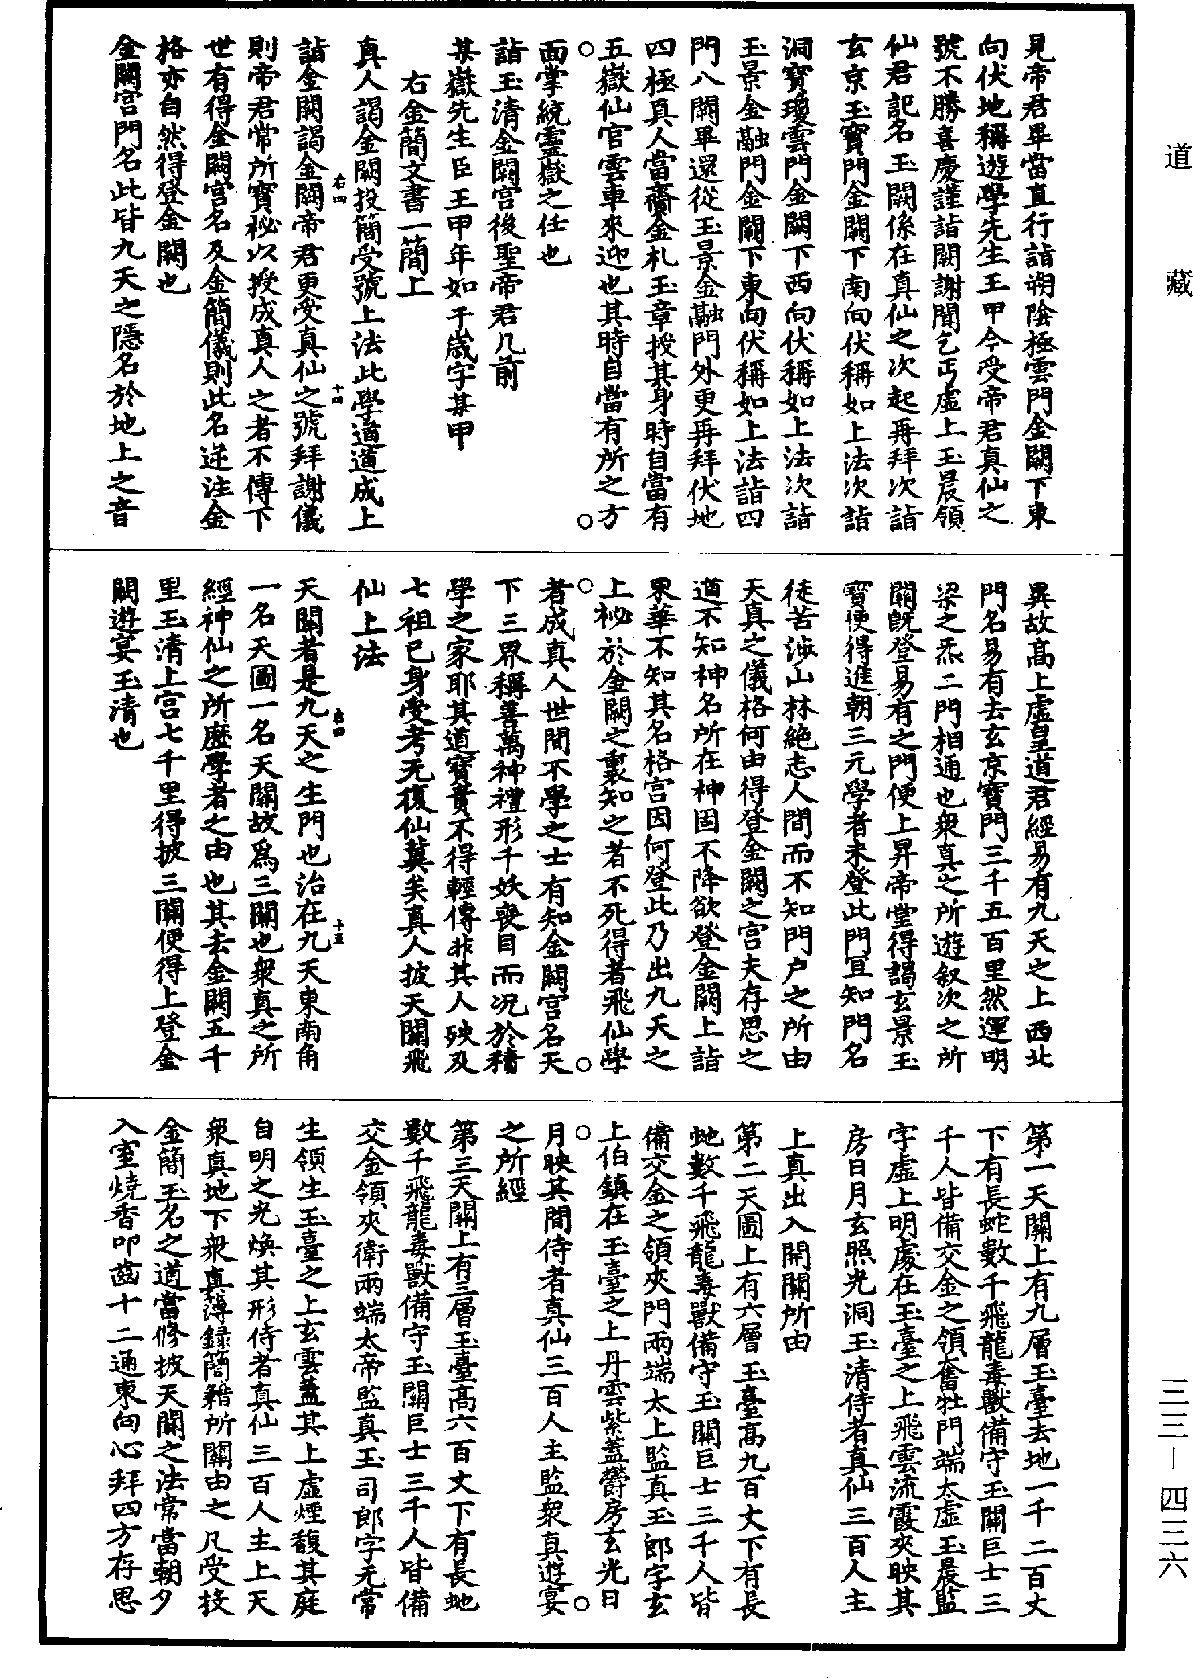 道藏
三三—四三六
見帝君畢當直行詣朔陰極雲門金闕下東
向伏地稱遊學先生王甲今受帝君真仙之
號不勝喜慶謹詣闕謝聞乞丐虛上玉晨領
仙君記名玉闕係在真仙之次起再拜次詣
玄京玉寶門金闕下南向伏稱如上法次詣
洞寶瓊雲門金闕下西向伏稱如上法次詣
玉景金融門金闕下東向伏稱如上法詣四
門八闕畢還從玉景金融門外更再拜伏地
四極真人當齎金札玉章授其身時自當有
五嶽仙官雲車來迎也其時自當有所之方
面掌統靈嶽之任也
詣玉清金闕宮後聖帝君几前
某嶽先生臣王甲年如干歲字某甲
右金簡文書一簡上
真人謁金闕投簡受號上法此學道道成上
詣金闕謁金闕帝君更受真仙之號拜謝儀
右四
十四
則帝君常所寶祕以授成真人之者不傳下
世有得金闕宮名及金簡儀則此名逆注金
格亦自然得登金闕也
金闕宮門名此皆九天之隱名於地上之音
異故高上虛皇道君經易有九天之上西北
門名易有去玄京寶門三千五百里然運明
梁之炁二門相通也衆真之所遊叙次之所
闕旣登易有之門便上昇帝堂得謁玄景玉
寶便得進朝三元學者未登此門且知門名
徒苦涉山林絶志人間而不知門户之所由
天真之儀格何由得登金闕之宮夫存思之
道不知神名所在神固不降欲登金闕上詣
界華不知其名格宮因何登此乃出九天之
上祕於金闕之裏知之者不死得者飛仙學
者成真人世間不學之士有知金闕宮名天
下三界稱善萬神禮形千妖喪目而況於稽
學之家耶其道寶貴不得輕傳非其人殃及
七祖已身受考无復仙冀矣真人披天關飛
仙上法
天關者是九天之生門也治在九天東南角
右四
十五
一名天圖一名天關故爲三關也衆真之所
經神仙之所歷學者之由也其去金闕五千
里玉清上宮七千里得披三關便得上登金
闕遊宴玉清也
第一天關上有九層玉臺去地一千二百丈
下有長蛇數千飛龍毒獸備守玉關巨士三
千人皆備交金之領奮壯門端太虛玉晨監
字虛上明處在玉臺之上飛雲流霞夾映其
房日月玄照光洞玉清侍者真仙三百人主
上真出入開關所由
第二天圖上有六層玉臺高九百丈下有長
虵數千飛龍毒獸備守玉關巨士三千人皆
備交金之領夾門兩端太上監真玉郎字玄
上伯鎮在玉臺之上丹雲紫蓋欝房玄光日
月映其間侍者真仙三百人主監衆真遊宴
之所經
第三天關上有三層玉臺高六百丈下有長虵
數千飛龍毒獸備守玉關巨士三千人皆備
交金領夾衛兩端太帝監真玉司郎字无常
生領生玉臺之上玄雲蓋其上虛煙馥其庭
自明之光煥其形侍者真仙三百人主上天
衆真地下衆真薄録簡籍所關由之凡受技
金簡玉名之道當修披天關之法常當朝夕
入室燒香叩齒十二通東向心拜四方存思